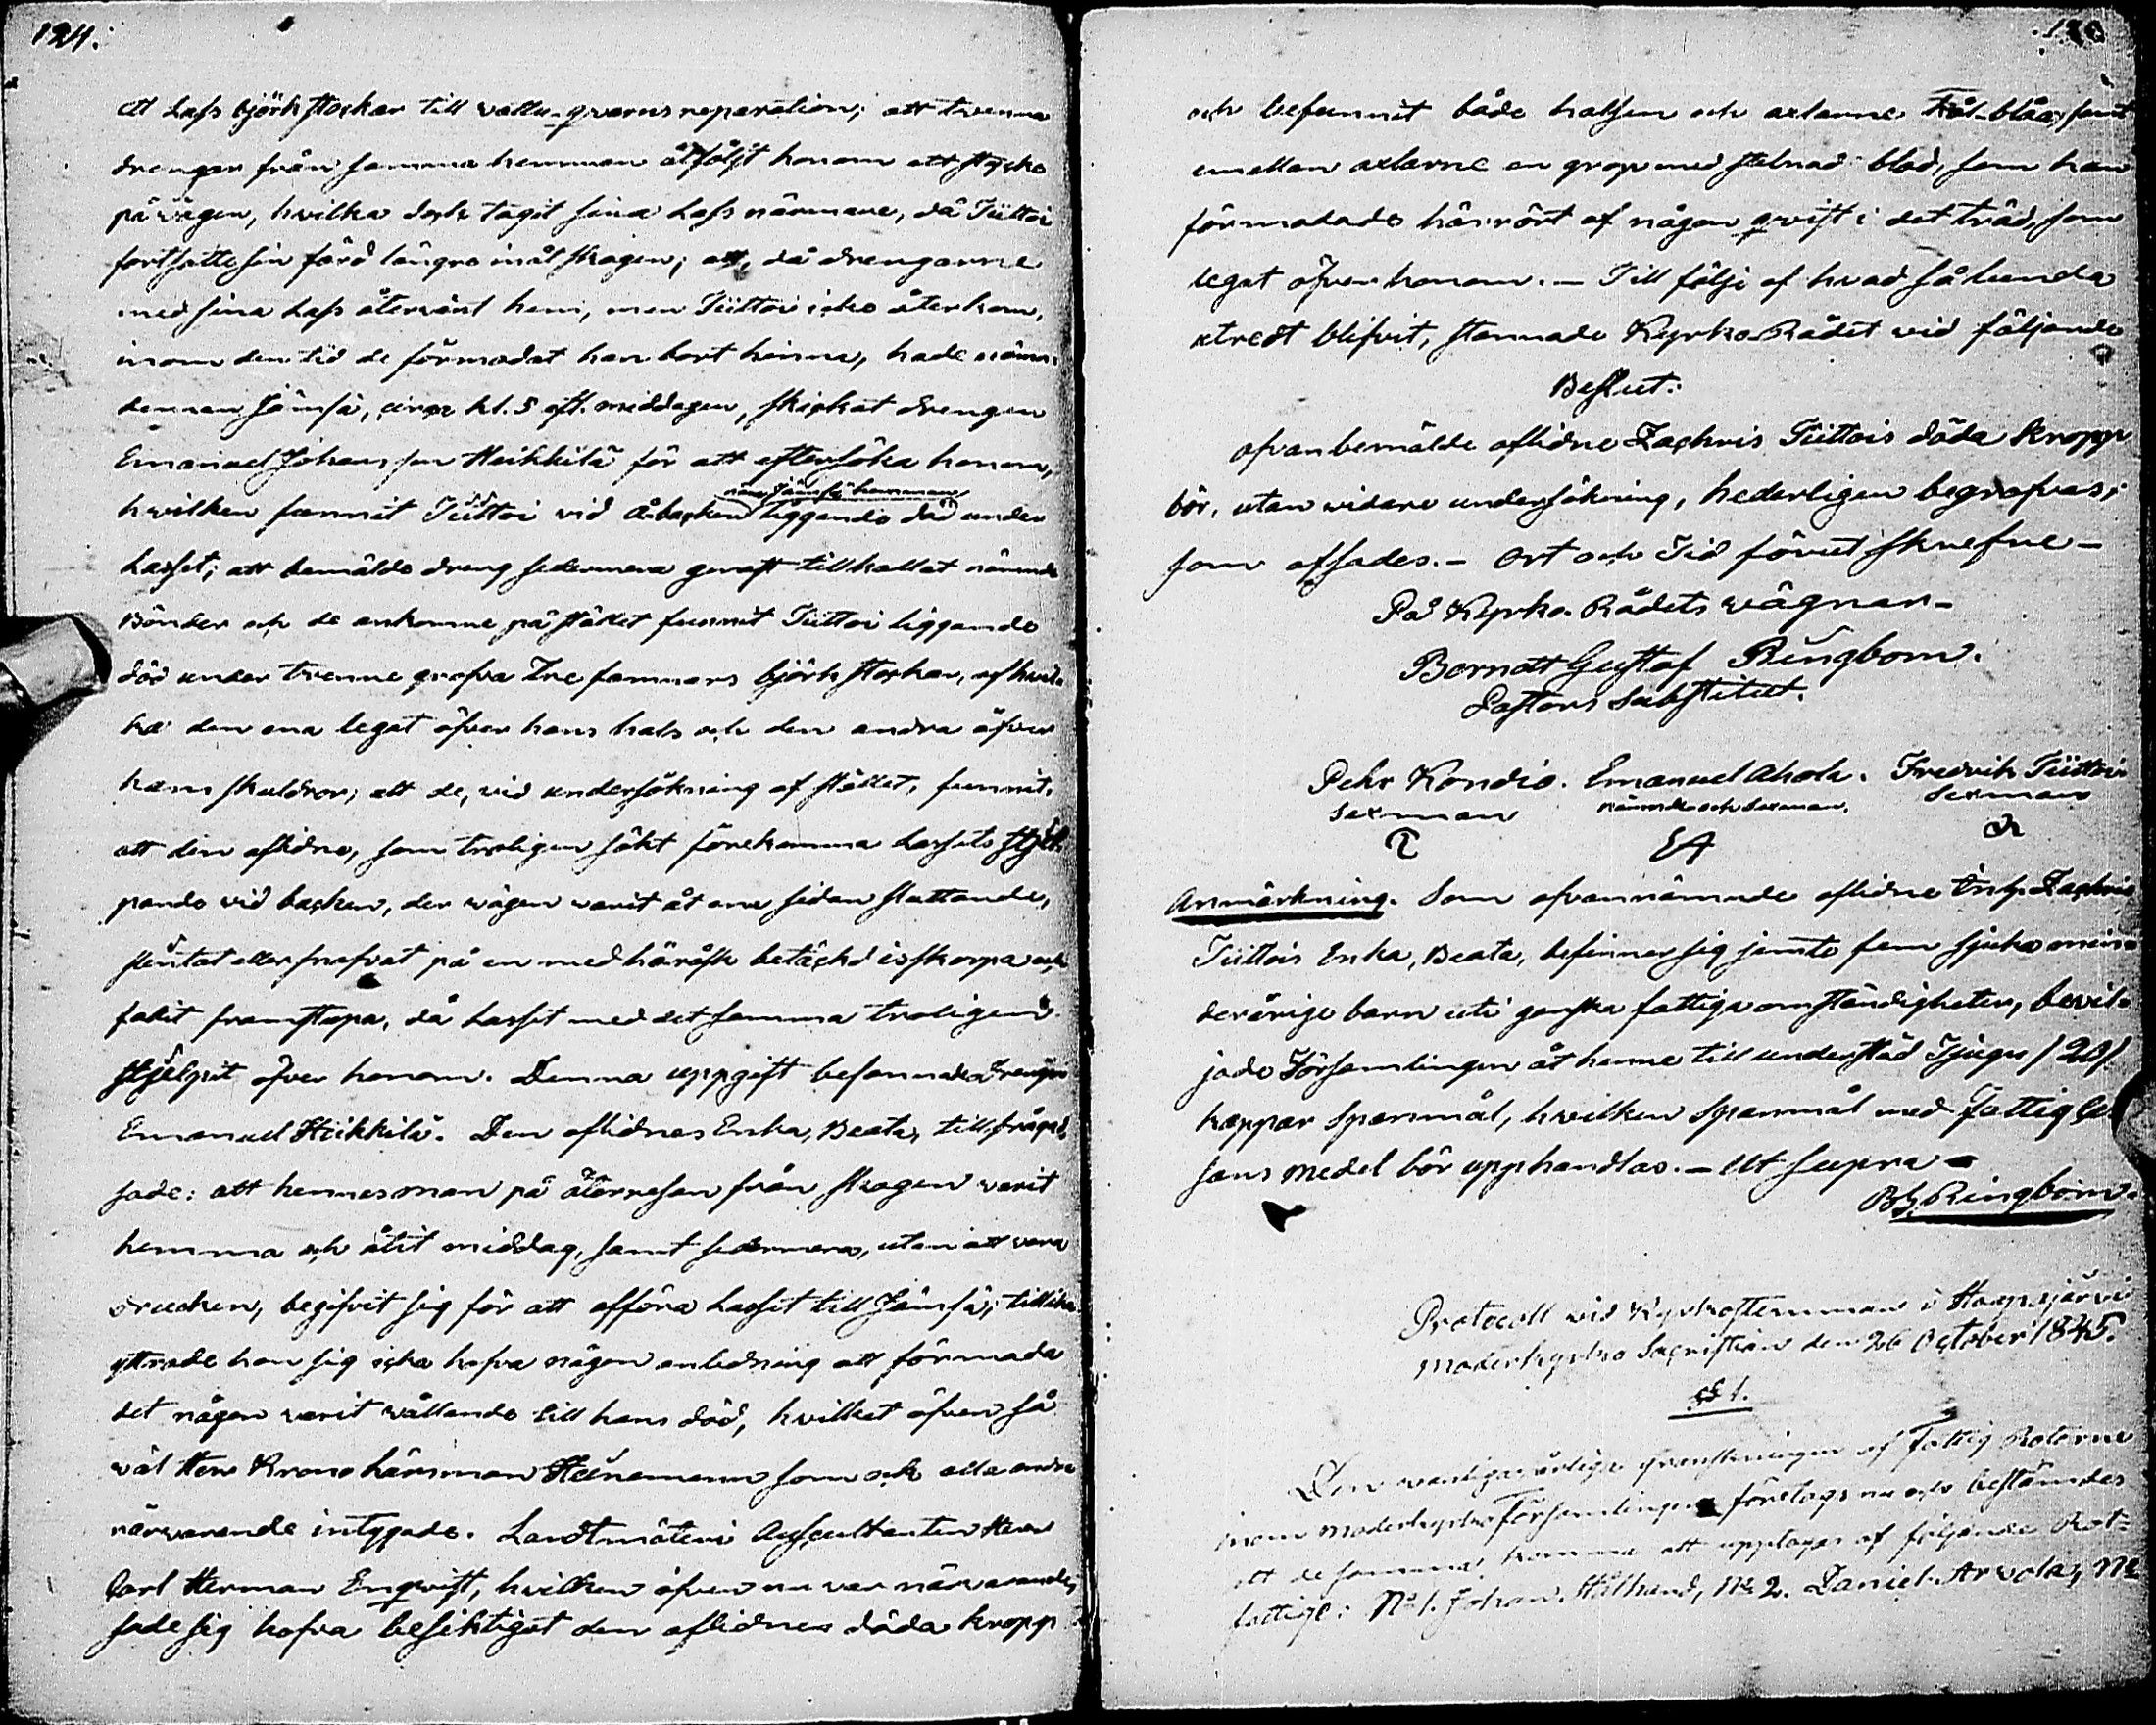 124.
ett Lass björkstockar till vattu-qvarns reparation; att tvenne
drengar från samma hemman åtföljt honom ett stycke
på vägen, hvilka dock tagit sina Lass närmare, då Tiittoi
fortsatte sin färd längre inåt skogen; att, då drengarne
med sina Lass återvänt hem, men Tiittoi icke återkom,
inom den tid de förmodat han bort hinna, hade nämn-
deman Jämsä, circa kl. 5 eft. middagen, skickat drengen
Emanuel Johansson Heikkilä för att eftersöka honom,
när Jämsä hemman
hvilken funnit Tiittoi vid Åbacken liggande död under
Lasset; att bemälde dreng sedermera genast tillkallat nämnde
Bönder och de ankomne på stället funnit Tiittoi liggande
död under tvenne grofva Tre famnars björkstockar, af hvil-
ka den ena legat öfver hans hals och den andra öfver
hans skuldror; att de, vid undersökning af stället, funnit,
att den aflidne, som troligen sökt förekomma Lassets stjel-
pande vid backen, der vägen varit åt ena sidan sluttande,
slintat eller snafvat på en med hårfisk betäckd isskorpa och
fallit framstupa, då Lasset med det samma troligen
stjelpit öfver honom. Denna uppgift besannade Drengen
Emanuel Heikkilä. Den aflidnes Enka, Beata, tillfrågad,
sade: att hennes man på återresan från skogen varit
hemma och ätit middag, samt sedermera, utan att vara
drucken, begifvit sig för att afföra Lasset till Jämsä; tillika
yttrade hon sig icke hafva någon anledning att förmoda
det någon varit vållande till hans död, hvilket äfven så
väl Herr Krono Länsman Heinemann som ock alla andra
närvarande intygade. Landtmäteri Auscultanten Herr
Carl Herman Enqvist, hvilken äfven nu var närvarande,
sade sig hafva besiktigat den aflidnes döda kropp
och befunnit både halsen och axlarne blåa, samt
emellan axlarne en grop med stelnad blod, som han
förmodade härrört af någon qvist i det träd, som
legat öfver honom. — Till följe af hvad sålunda
utredt blifvit, stannade Kyrko-Rådet vid följande
Beslut:
ofvanbemälde aflidne Zachris Tiittois döda kropp
bör, utan vidare undersökning, hederligen begrafvas;
som afsades. — Ort och Tid förutskrefne —
På Kyrko-Rådets vägnar —
Berndt Gustaf Ringbom.
Pastors Substitut.
Pehr Kondio. Emanuel Ahola. Fredrik Tiittois
Sexman nämnde och Sexman. Sexman
EA
Anmärkning. Som ofvannämnde aflidne Inh. Zachris
Tiittois Enka, Beata, befinner sig jemte fem sjuka min-
derårige barn uti ganska fattiga omständigheter, bevil-
jade Församlingen åt henne till understöd Tjugu /20/
kappar Spanmål, hvilken Spanmål med fattig Cas-
sans medel bör upphandlas. — Ut supra —
BG. Ringbom.
Protocoll vid Kyrkostemman i Haapajärvi
Moderkyrko Sacristian den 26 October 1845.
§ 1.
Den vanliga årliga granskningen af Fattig Rotarne
inom Moderkyrko Församlingen företogs nu och bestämdes
att desamma komma att upptagas af följande Rot-
fattige: No 1. Johan Stålhand, No 2. Daniel Arvola, No